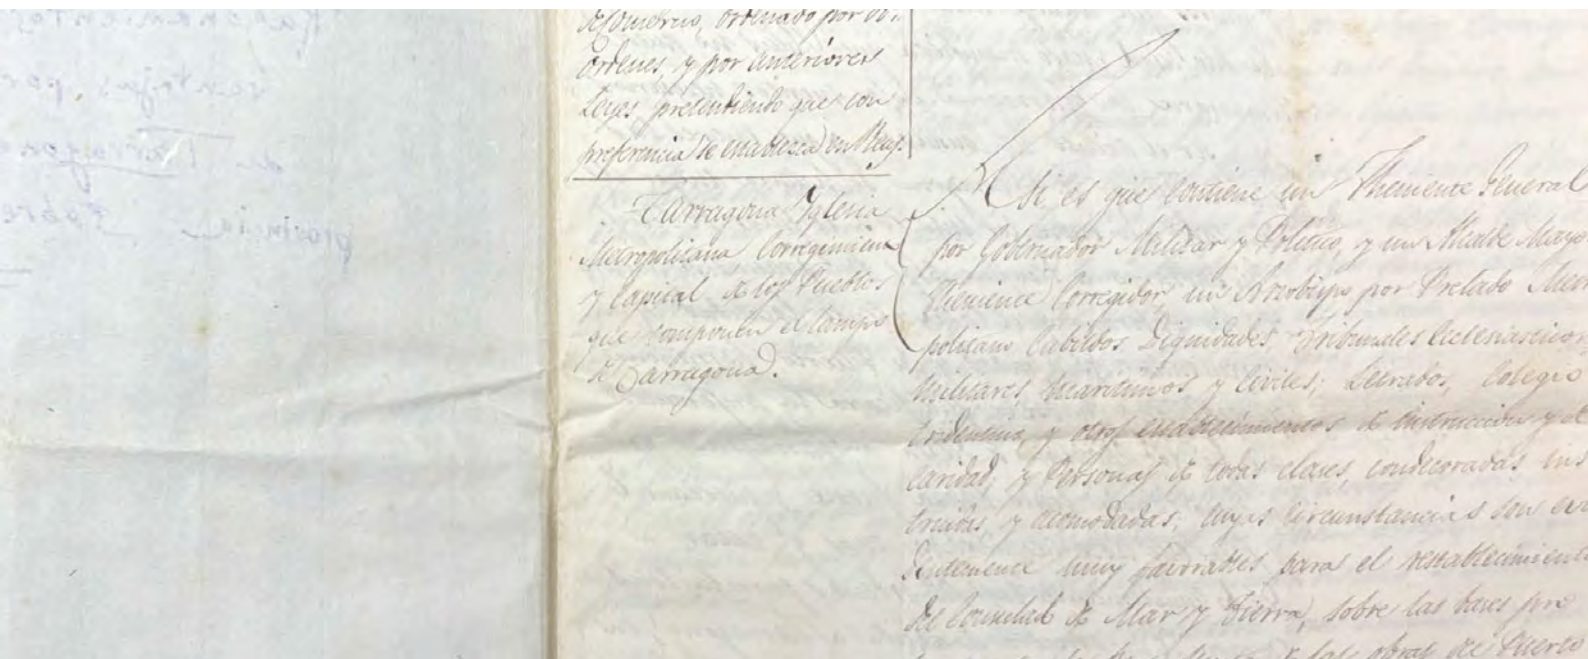 de Comercio, ordenado por
Ordenes, y por anteriores
Leyes pretendiendo que con
preferencia se establezca en Reus.
Tarragona Yglesia
Metropolitana Corregimiento
y Capital de los Pueblos
que componen el Campo
de Tarragona.
Si es que contiene un Theniente General
por Gobernador Militar y Politico, y un Alcalde Mayor
Theniente Corregidor, un Arzobispo por Prelado Metro
politano Cabildos Dignidades, Tribunales Eclesiasticos
Militares, Maritimos y Civiles; Letrados, Colegio
tridentino, y otros establecimientos de instruccion y de
caridad, y Personas de todas clases, condecoradas, ins
truidas, y acomodadas, cuyas circunstancias son evi
dentemente muy favorables para el restablecimiento
del Consulado de Mar y Tierra, sobre las bases pre
las obras del Puerto